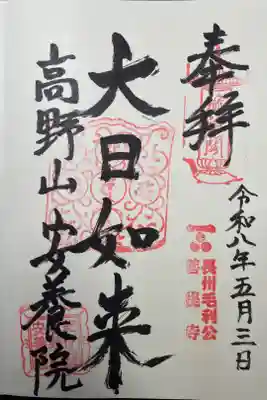 奉拝
令和八年五月三日
長州毛利公
菩提寺
大日如来
高野山安養院